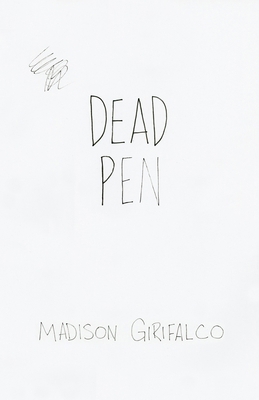 DEAD
PEN
MADISON GIRIFALCO